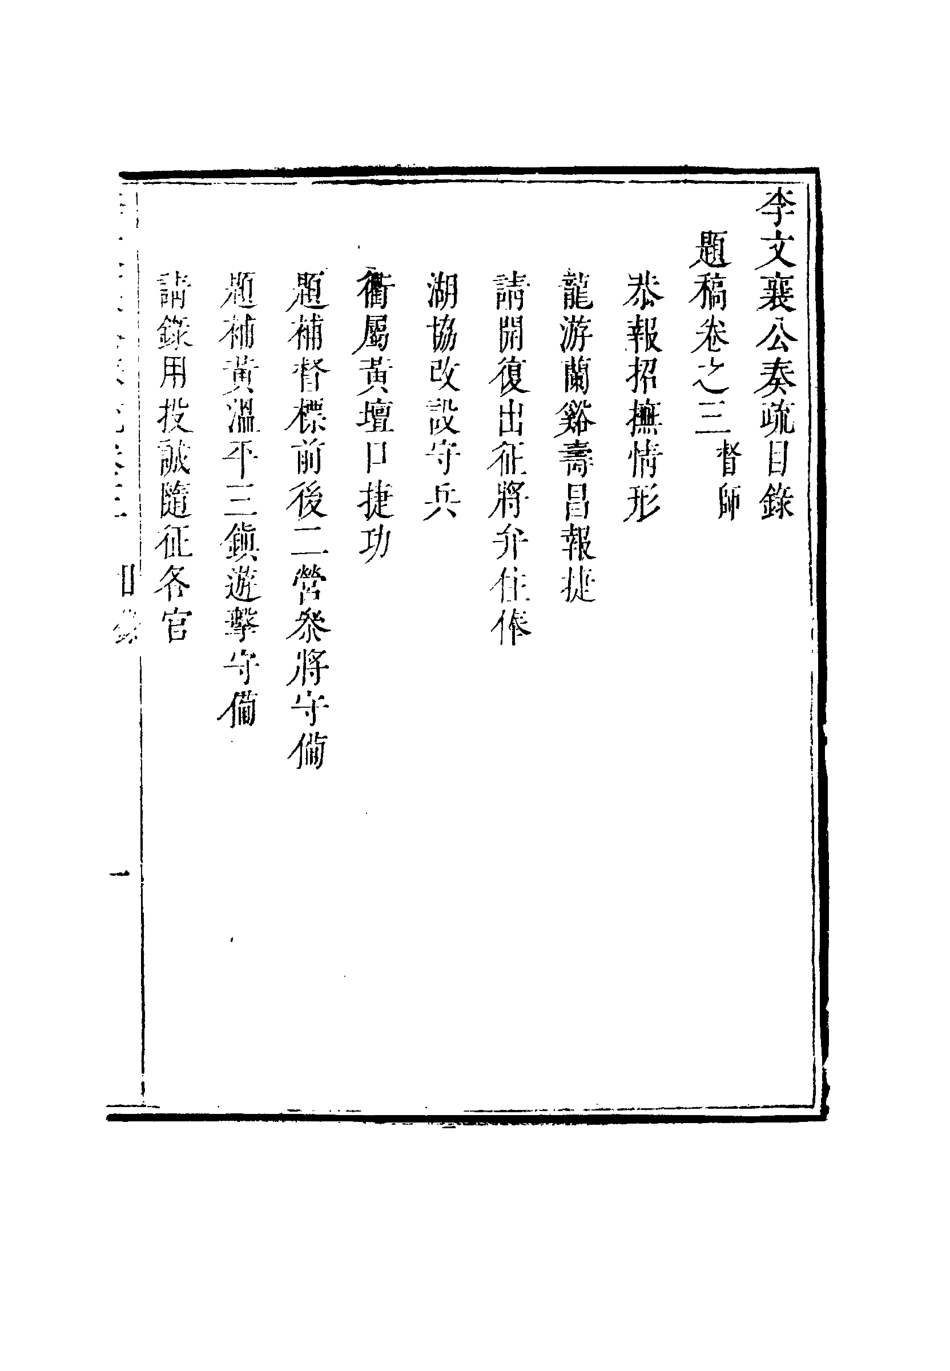 李文襄公奏疏目錄
題稿卷之三 督師
恭報招撫情形
龍游蘭谿壽昌報捷
請開復出征將弁住俸
湖協改設守兵
衢屬黃壇口捷功
題補督標前後二營叅將守備
題補黃溫平三鎭遊擊守備
請錄用投誠隨征各官
目錄
一